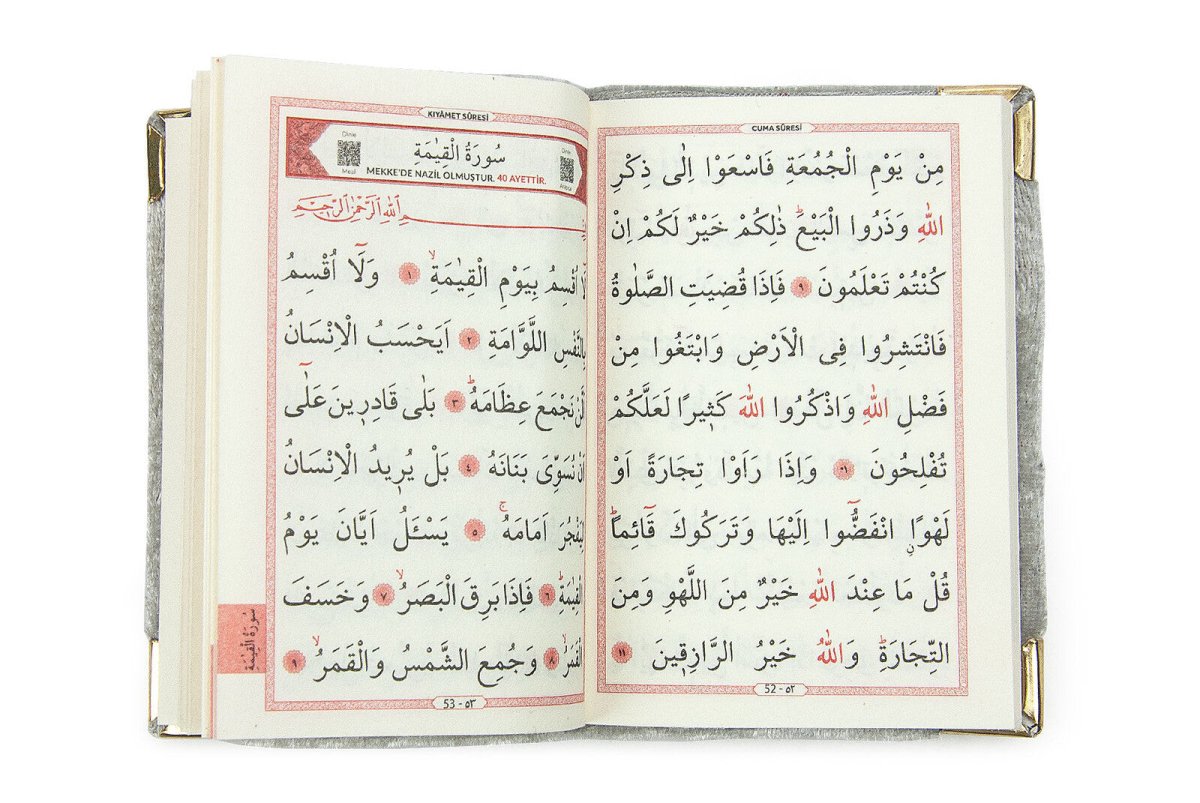 CUMA SÛRESİ
مِنْ يَوْمِ الْجُمُعَةِ فَاسْعَوْا اِلٰى ذِكْرِ
اللّٰهِ وَذَرُوا الْبَيْعَۜ ذٰلِكُمْ خَيْرٌ لَكُمْ اِنْ
كُنْتُمْ تَعْلَمُونَ ٩ فَاِذَا قُضِيَتِ الصَّلٰوةُ
فَانْتَشِرُوا فِى الْاَرْضِ وَابْتَغُوا مِنْ
فَضْلِ اللّٰهِ وَاذْكُرُوا اللّٰهَ كَثٖيرًا لَعَلَّكُمْ
تُفْلِحُونَ ١٠ وَاِذَا رَاَوْا تِجَارَةً اَوْ
لَهْوًاۨ انْفَضُّٓوا اِلَيْهَا وَتَرَكُوكَ قَٓائِمًاۜ
قُلْ مَا عِنْدَ اللّٰهِ خَيْرٌ مِنَ اللَّهْوِ وَمِنَ
التِّجَارَةِۜ وَاللّٰهُ خَيْرُ الرَّازِقٖينَ ١١
52 - ٥٢
KIYÂMET SÛRESİ
Dinle
Meal
سُورَةُ الْقِيٰمَةِ
MEKKE'DE NAZİL OLMUŞTUR. 40 AYETTİR.
Dinle
بِسْمِ اللّٰهِ الرَّحْمٰنِ الرَّحٖيمِ
لَٓا اُقْسِمُ بِيَوْمِ الْقِيٰمَةِۙ ١ وَلَٓا اُقْسِمُ
بِالنَّفْسِ اللَّوَّامَةِ ٢ اَيَحْسَبُ الْاِنْسَانُ
اَلَّنْ نَجْمَعَ عِظَامَهُۜ ٣ بَلٰى قَادِرٖينَ عَلٰٓى
اَنْ نُسَوِّىَ بَنَانَهُ ٤ بَلْ يُرٖيدُ الْاِنْسَانُ
لِيَفْجُرَ اَمَامَهُۚ ٥ يَسْـَٔلُ اَيَّانَ يَوْمُ
الْقِيٰمَةِۜ ٦ فَاِذَا بَرِقَ الْبَصَرُۙ ٧ وَخَسَفَ
الْقَمَرُۙ ٨ وَجُمِعَ الشَّمْسُ وَالْقَمَرُۙ ٩
سُورَةُ الْقِيٰمَة
53 - ٥٣